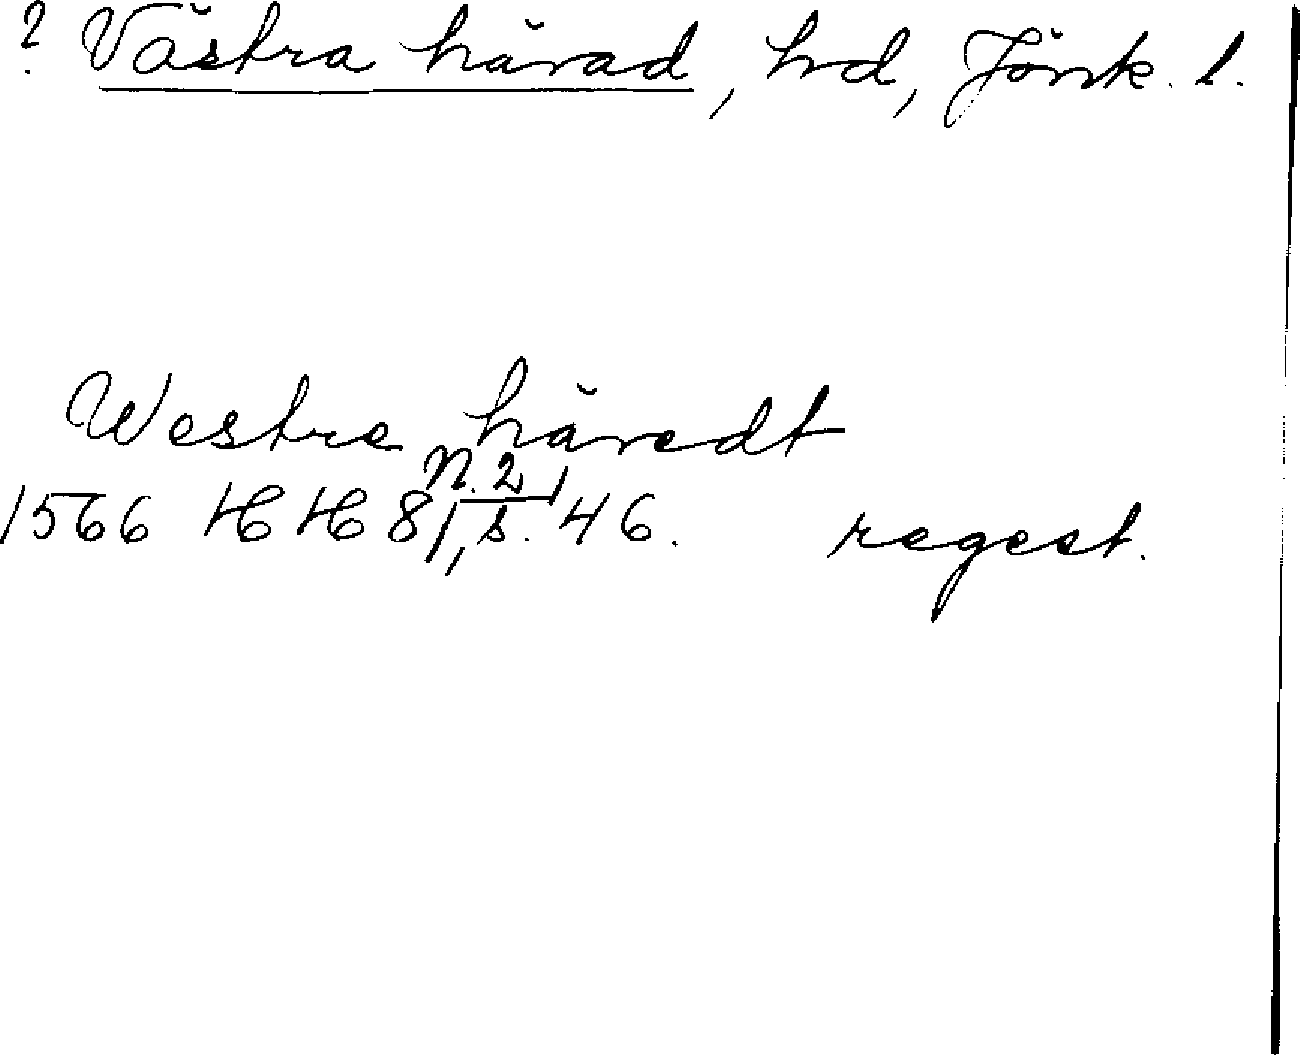 ? Västra härad, hd, Jönk. l.
Westre häredt
N. 2
1566 HH 8, s. 46. regest.